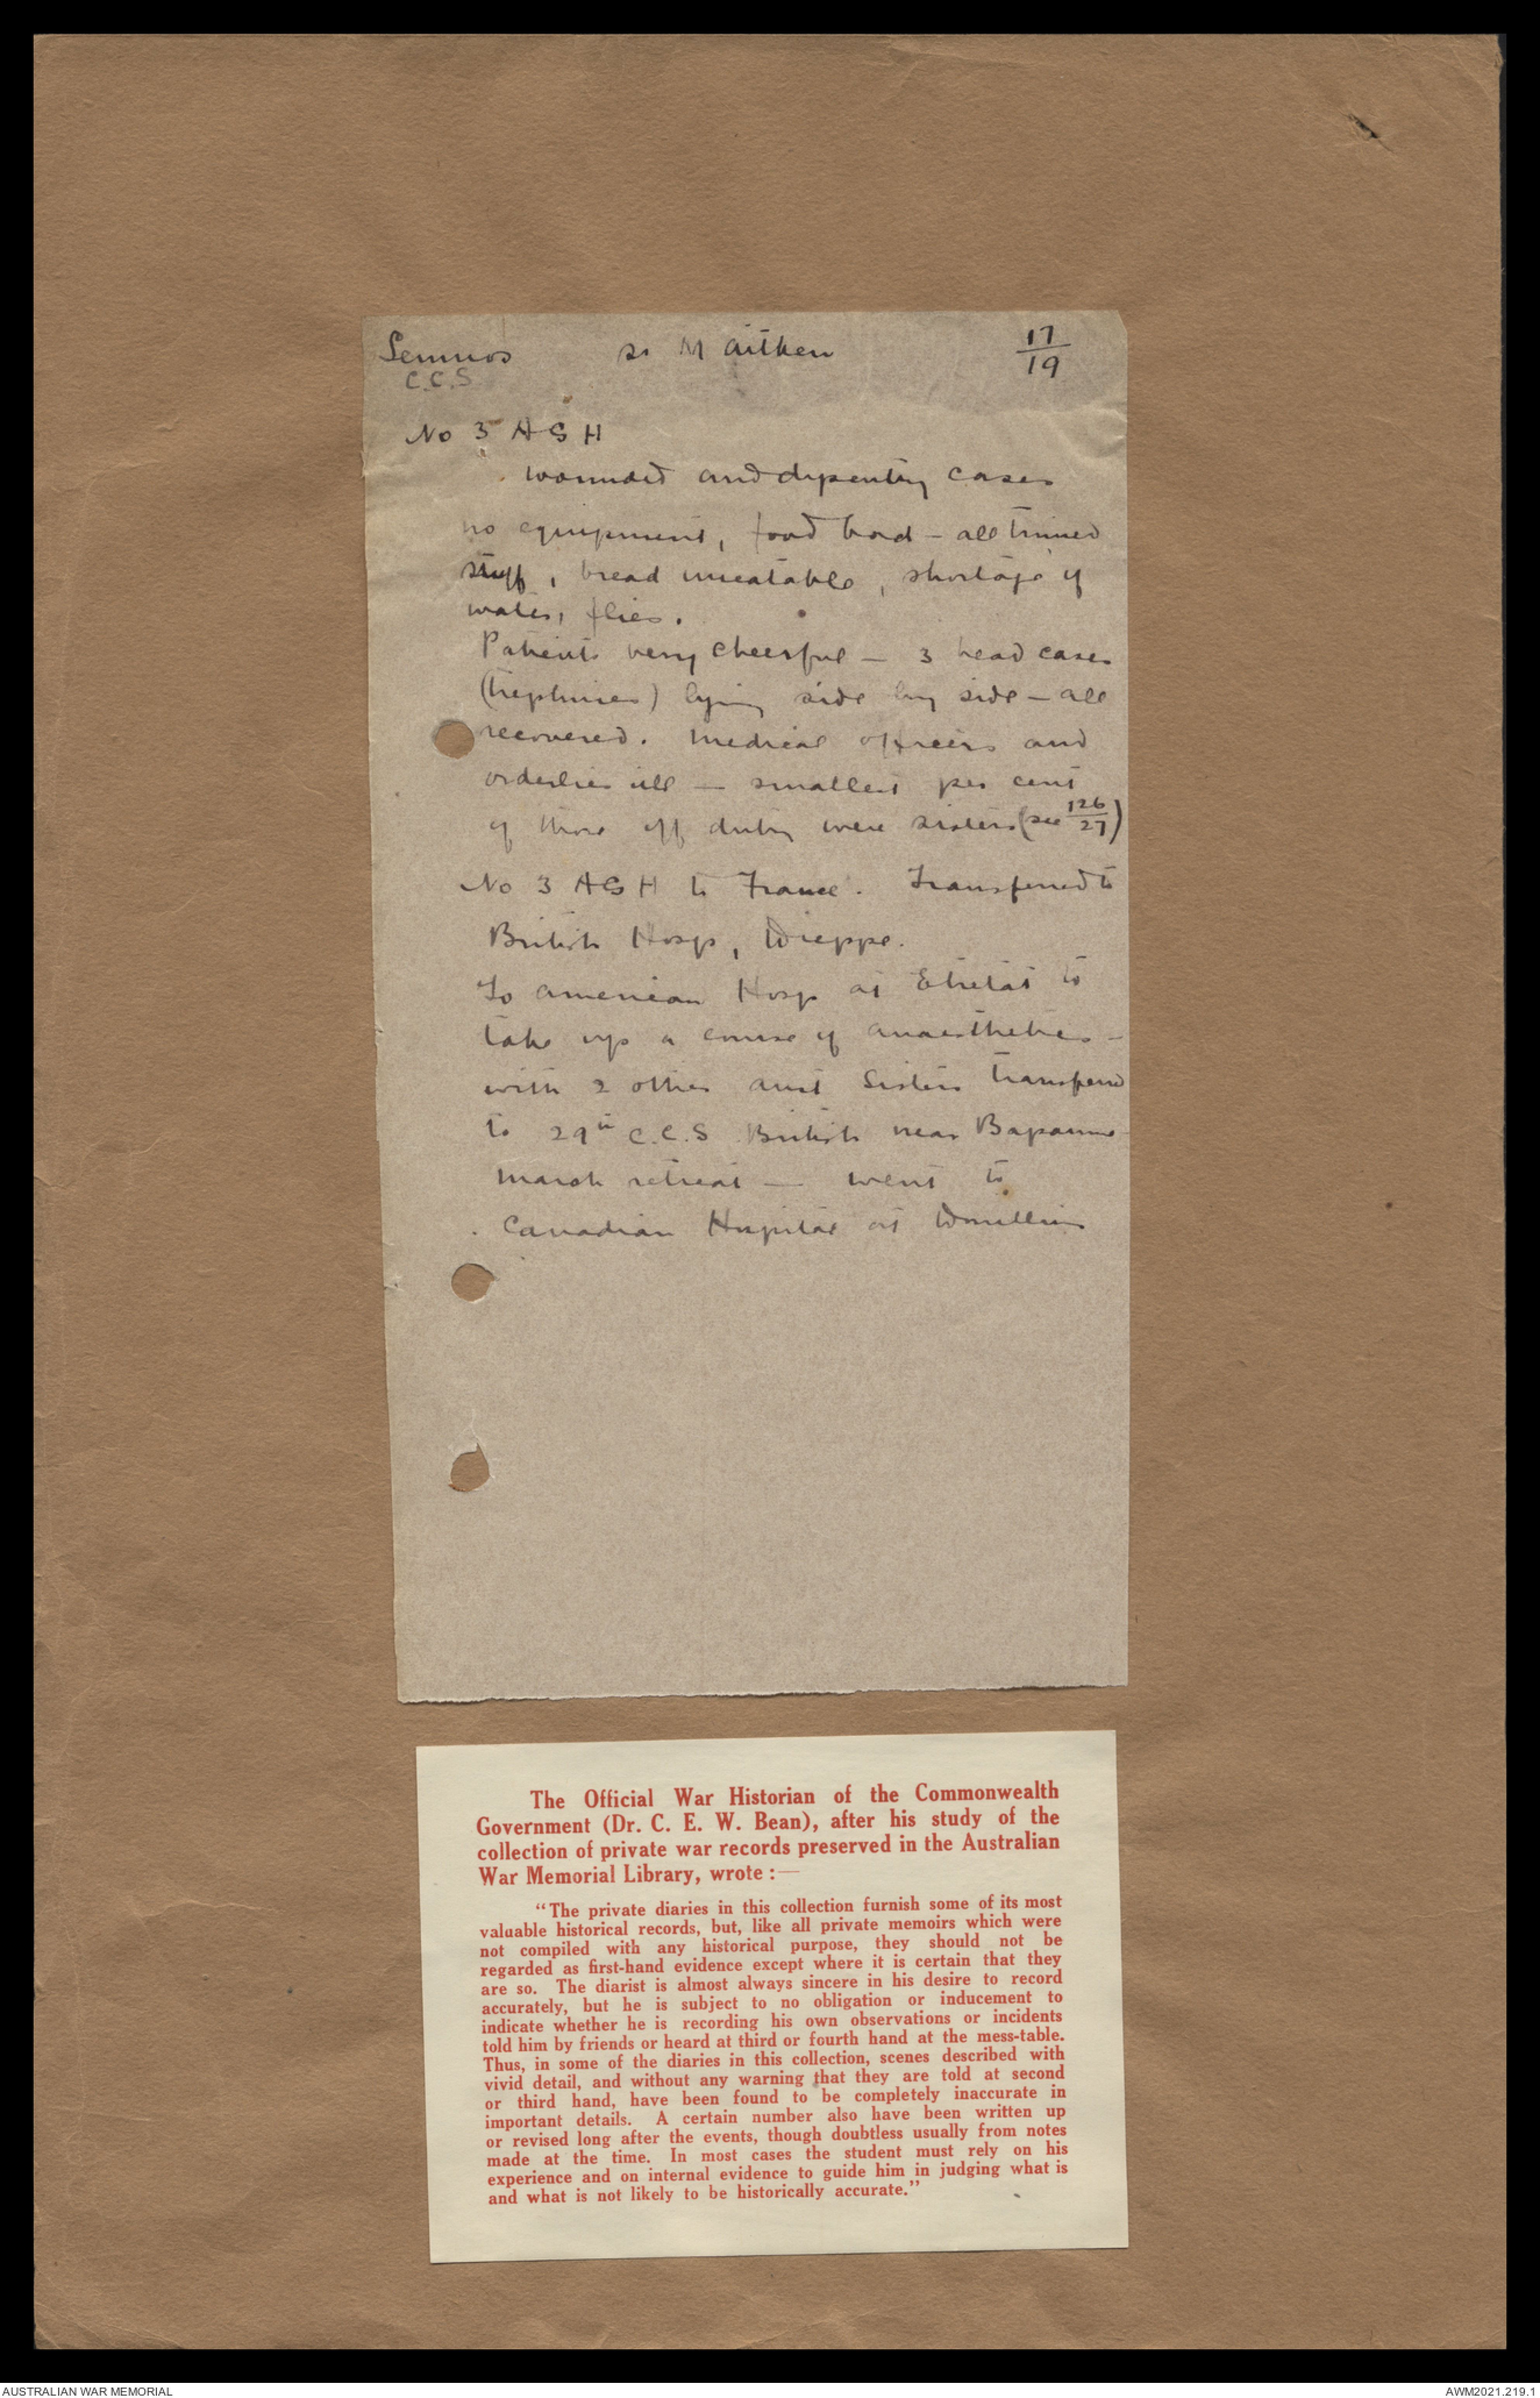 Lemnos sr M Aitken 17/19
C.C.S
No 3 A G H
wounded and dysentry cases
no equipment, food bad - all tinned
stuff, bread uneatable, shortage of
water, flies.
Patients very cheerful - 3 head cases
(trephines) lying side by side - all
recovered. Medical officers and
orderlies ill - smallest per cent
of those off duty were sisters (see 126/27)
No 3 AGH to France. Transferred to
British Hosp, Dieppe.
To American Hosp at Etretat to
take up a course of anaesthetics -
with 2 other Aust Sisters transferred
to 29th C.C.S British near Bapaume
March retreat - went to
Canadian Hospital at Doullens
The Official War Historian of the Commonwealth
Government (Dr. C. E. W. Bean), after his study of the
collection of private war records preserved in the Australian
War Memorial Library, wrote :—
"The private diaries in this collection furnish some of its most
valuable historical records, but, like all private memoirs which were
not compiled with any historical purpose, they should not be
regarded as first-hand evidence except where it is certain that they
are so. The diarist is almost always sincere in his desire to record
accurately, but he is subject to no obligation or inducement to
indicate whether he is recording his own observations or incidents
told him by friends or heard at third or fourth hand at the mess-table.
Thus, in some of the diaries in this collection, scenes described with
vivid detail, and without any warning that they are told at second
or third hand, have been found to be completely inaccurate in
important details. A certain number also have been written up
or revised long after the events, though doubtless usually from notes
made at the time. In most cases the student must rely on his
experience and on internal evidence to guide him in judging what is
and what is not likely to be historically accurate."
AUSTRALIAN WAR MEMORIAL AWM2021.219.1